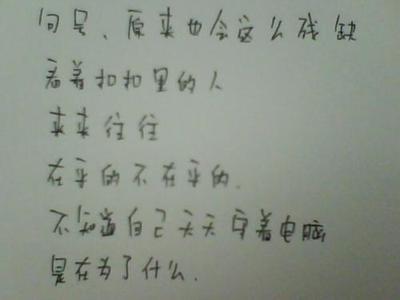 问号、原来也会这么残缺
看着扣扣里的人
来来往往
在乎的不在乎的.
不知道自己天天守着电脑
是在为了什么.